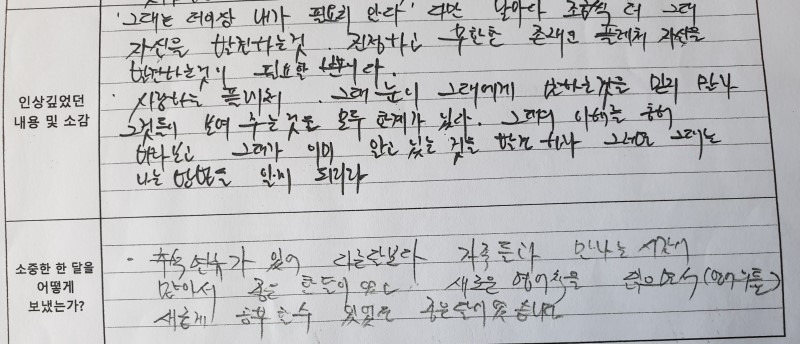 '그대는 더이상 내가 필요치 안다' 다만 날마다 조금씩 더 그대
자신을 발견하는것. 진정하고 무한한 존재인 플레처 자신을
발견하는것이 필요할 뿐이다.
인상깊었던
내용 및 소감
· 사랑하는 플레처. 그대 눈이 그대에게 말하는것을 믿지 말라
그것들이 보여 주는것은 모두 한계가 있다. 그대의 이해를 통해
바라보고 그대가 이미 알고 있는 것을 발견 하라 그러면 그대는
나는 방법을 알게 되리라
소중한 한 달을
어떻게
보냈는가?
· 추석연휴가 있어 다른달보다 가족들과 만나는 시간이
많아서 좋은 한달이였고 새로운 영어책을
새롭게 공부 할수 있었던 좋은달이였습니다